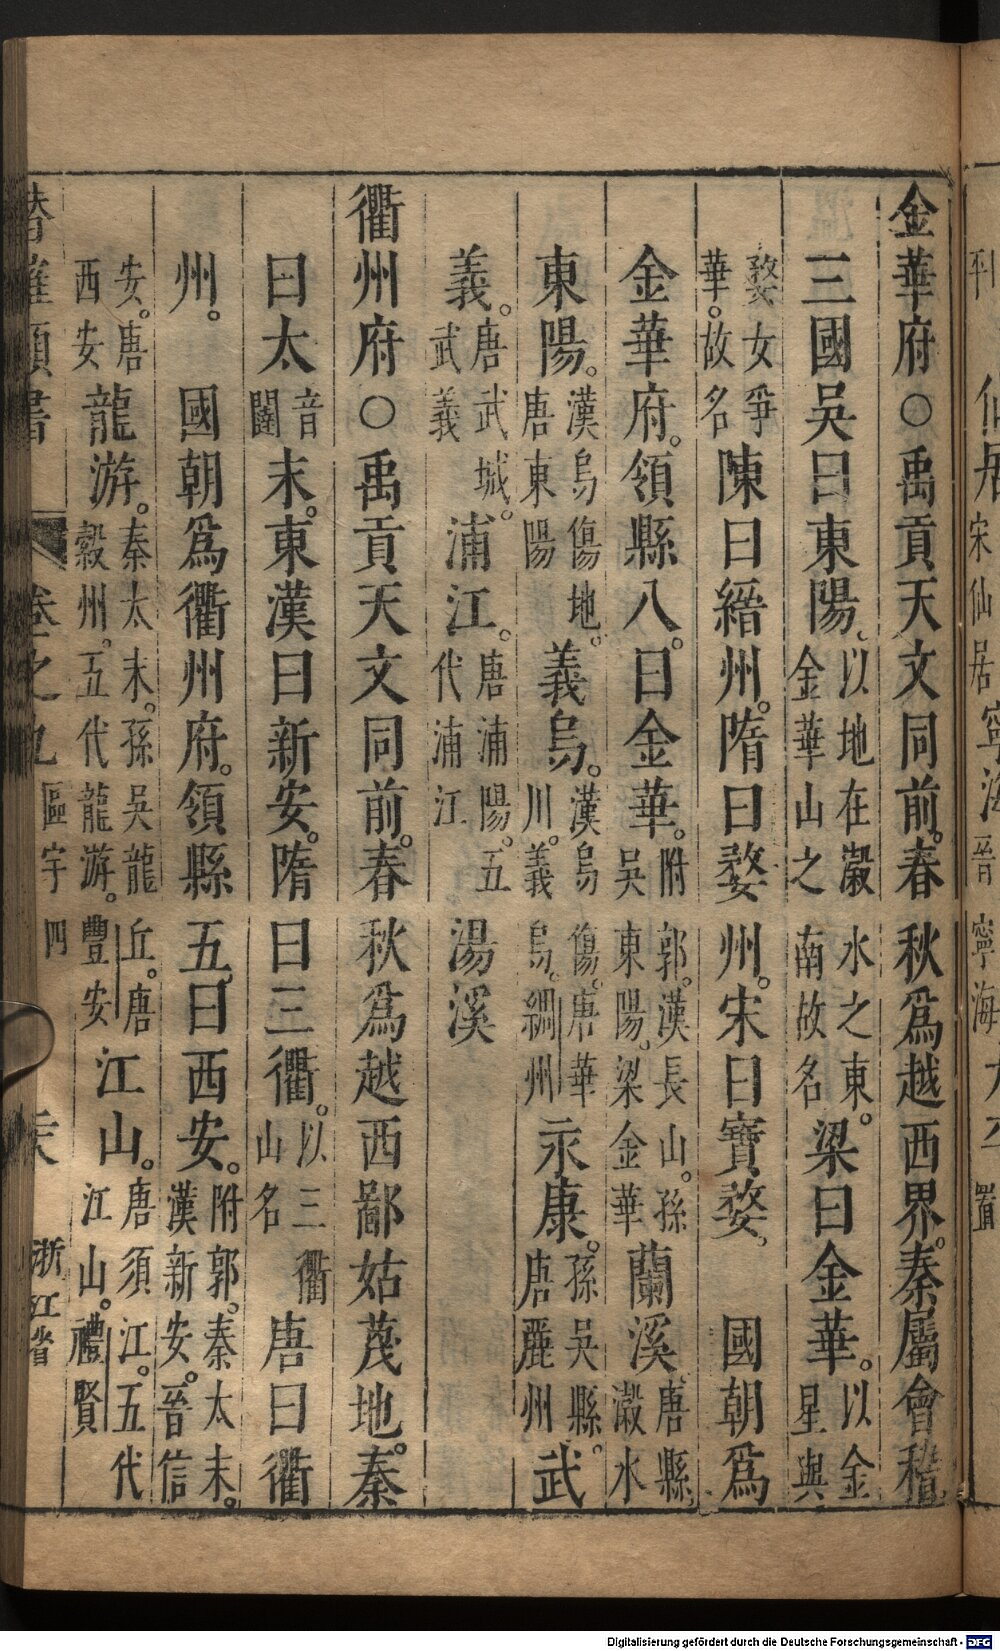 金華府○禹貢天文同前。春秋爲越西界。秦屬會稽
三國吳曰東陽。以地在瀫水之東。金華山之南故名梁曰金華。以金星與
婺女爭華。故名陳曰縉州。隋曰婺州。宋曰寶婺。國朝爲
金華府。領縣八。曰金華。附郭。漢長山。孫吳東陽。梁金華蘭溪。唐縣。瀫水
東陽。漢烏傷地。唐東陽義烏。漢烏傷。唐華川。義烏。綢州永康。孫吳縣。唐麗州武
義。唐武城。武義浦江。唐浦陽。五代浦江湯溪
衢州府○禹貢天文同前。春秋爲越西鄙姑蔑地。秦
曰太音闥末。東漢曰新安。隋曰三衢。以三衢山名唐曰衢
州。國朝爲衢州府。領縣五。曰西安。附郭。秦太末。漢新安。晉信
安。唐西安龍游。秦太末。孫吳龍丘。唐穀州。五代龍游。豐安江山。唐須江。五代江山。禮賢
卷之九 區宇 四 浙江省
仙居宋仙居寧海晉寧海太平置
Digitalisierung gefördert durch die Deutsche Forschungsgemeinschaft - DFG